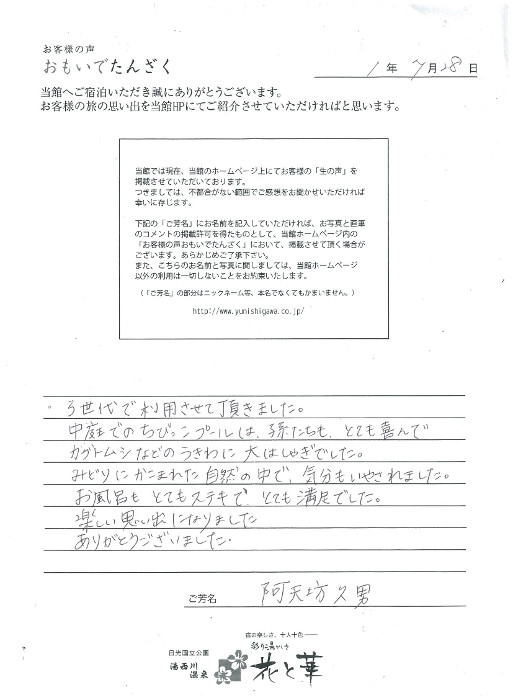 お客様の声
おもいでたんざく
1年7月28日
当館へご宿泊いただき誠にありがとうございます。
お客様の旅の思い出を当館HPにてご紹介させていただければと思います。
当館では現在、当館のホームページ上にてお客様の「生の声」を
掲載させていただいております。
つきましては、不都合がない範囲でご感想をお聞かせいただければ
幸いに存じます。
下記の「ご芳名」にお名前を記入していただければ、お写真と直筆
のコメントの掲載許可を得たものとして、当館ホームページ内の
「お客様の声おもいでたんざく」において、掲載させて頂く場合が
ございます。あらかじめご了承下さい。
また、こちらのお名前と写真に関しましては、当館ホームページ
以外の利用は一切しないことをお約束いたします。
(「ご芳名」の部分はニックネーム等、本名でなくてもかまいません。)
http://www.yunishigawa.co.jp/
3世代で利用させて頂きました。
中庭でのちびっこプールは、孫たちも、とても喜んで
カブトムシなどのうきわに大はしゃぎでした。
みどりにかこまれた自然の中で、気分もいやされました。
お風呂もとてもステキで、とても満足でした。
楽しい思い出になりました
ありがとうございました.
ご芳名 阿天坊久男
宿の楽しさ、十人十色
日光国立公園
湯西川
温泉
彩り湯かしき
花と華